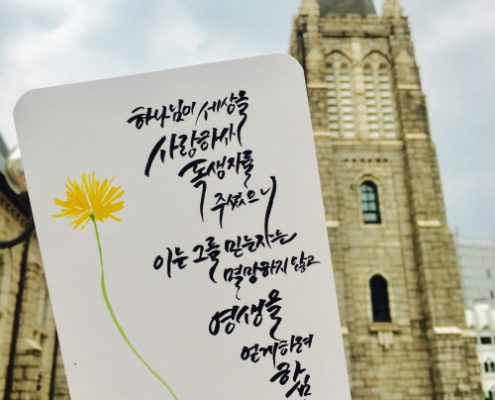 하나님이 세상을
사랑하사
독생자를
주셨으니
이는 그를 믿는자는
멸망하지 않고
영생을
얻게하려
하심